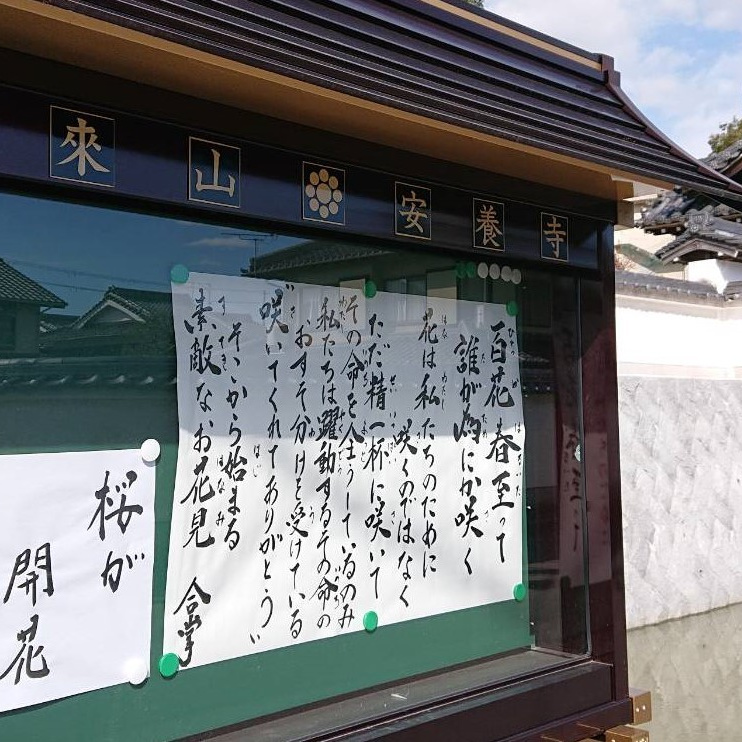 來山 安養寺
百花春至って
誰が為にか咲く
花は私たちのために
咲くのではなく
ただ精一杯に咲いて
その命を全うしているのみ
私たちは躍動するその命の
おすそ分けを受けている
“咲いてくれてありがとう”
そこから始まる
素敵なお花見 合掌
桜が
開花